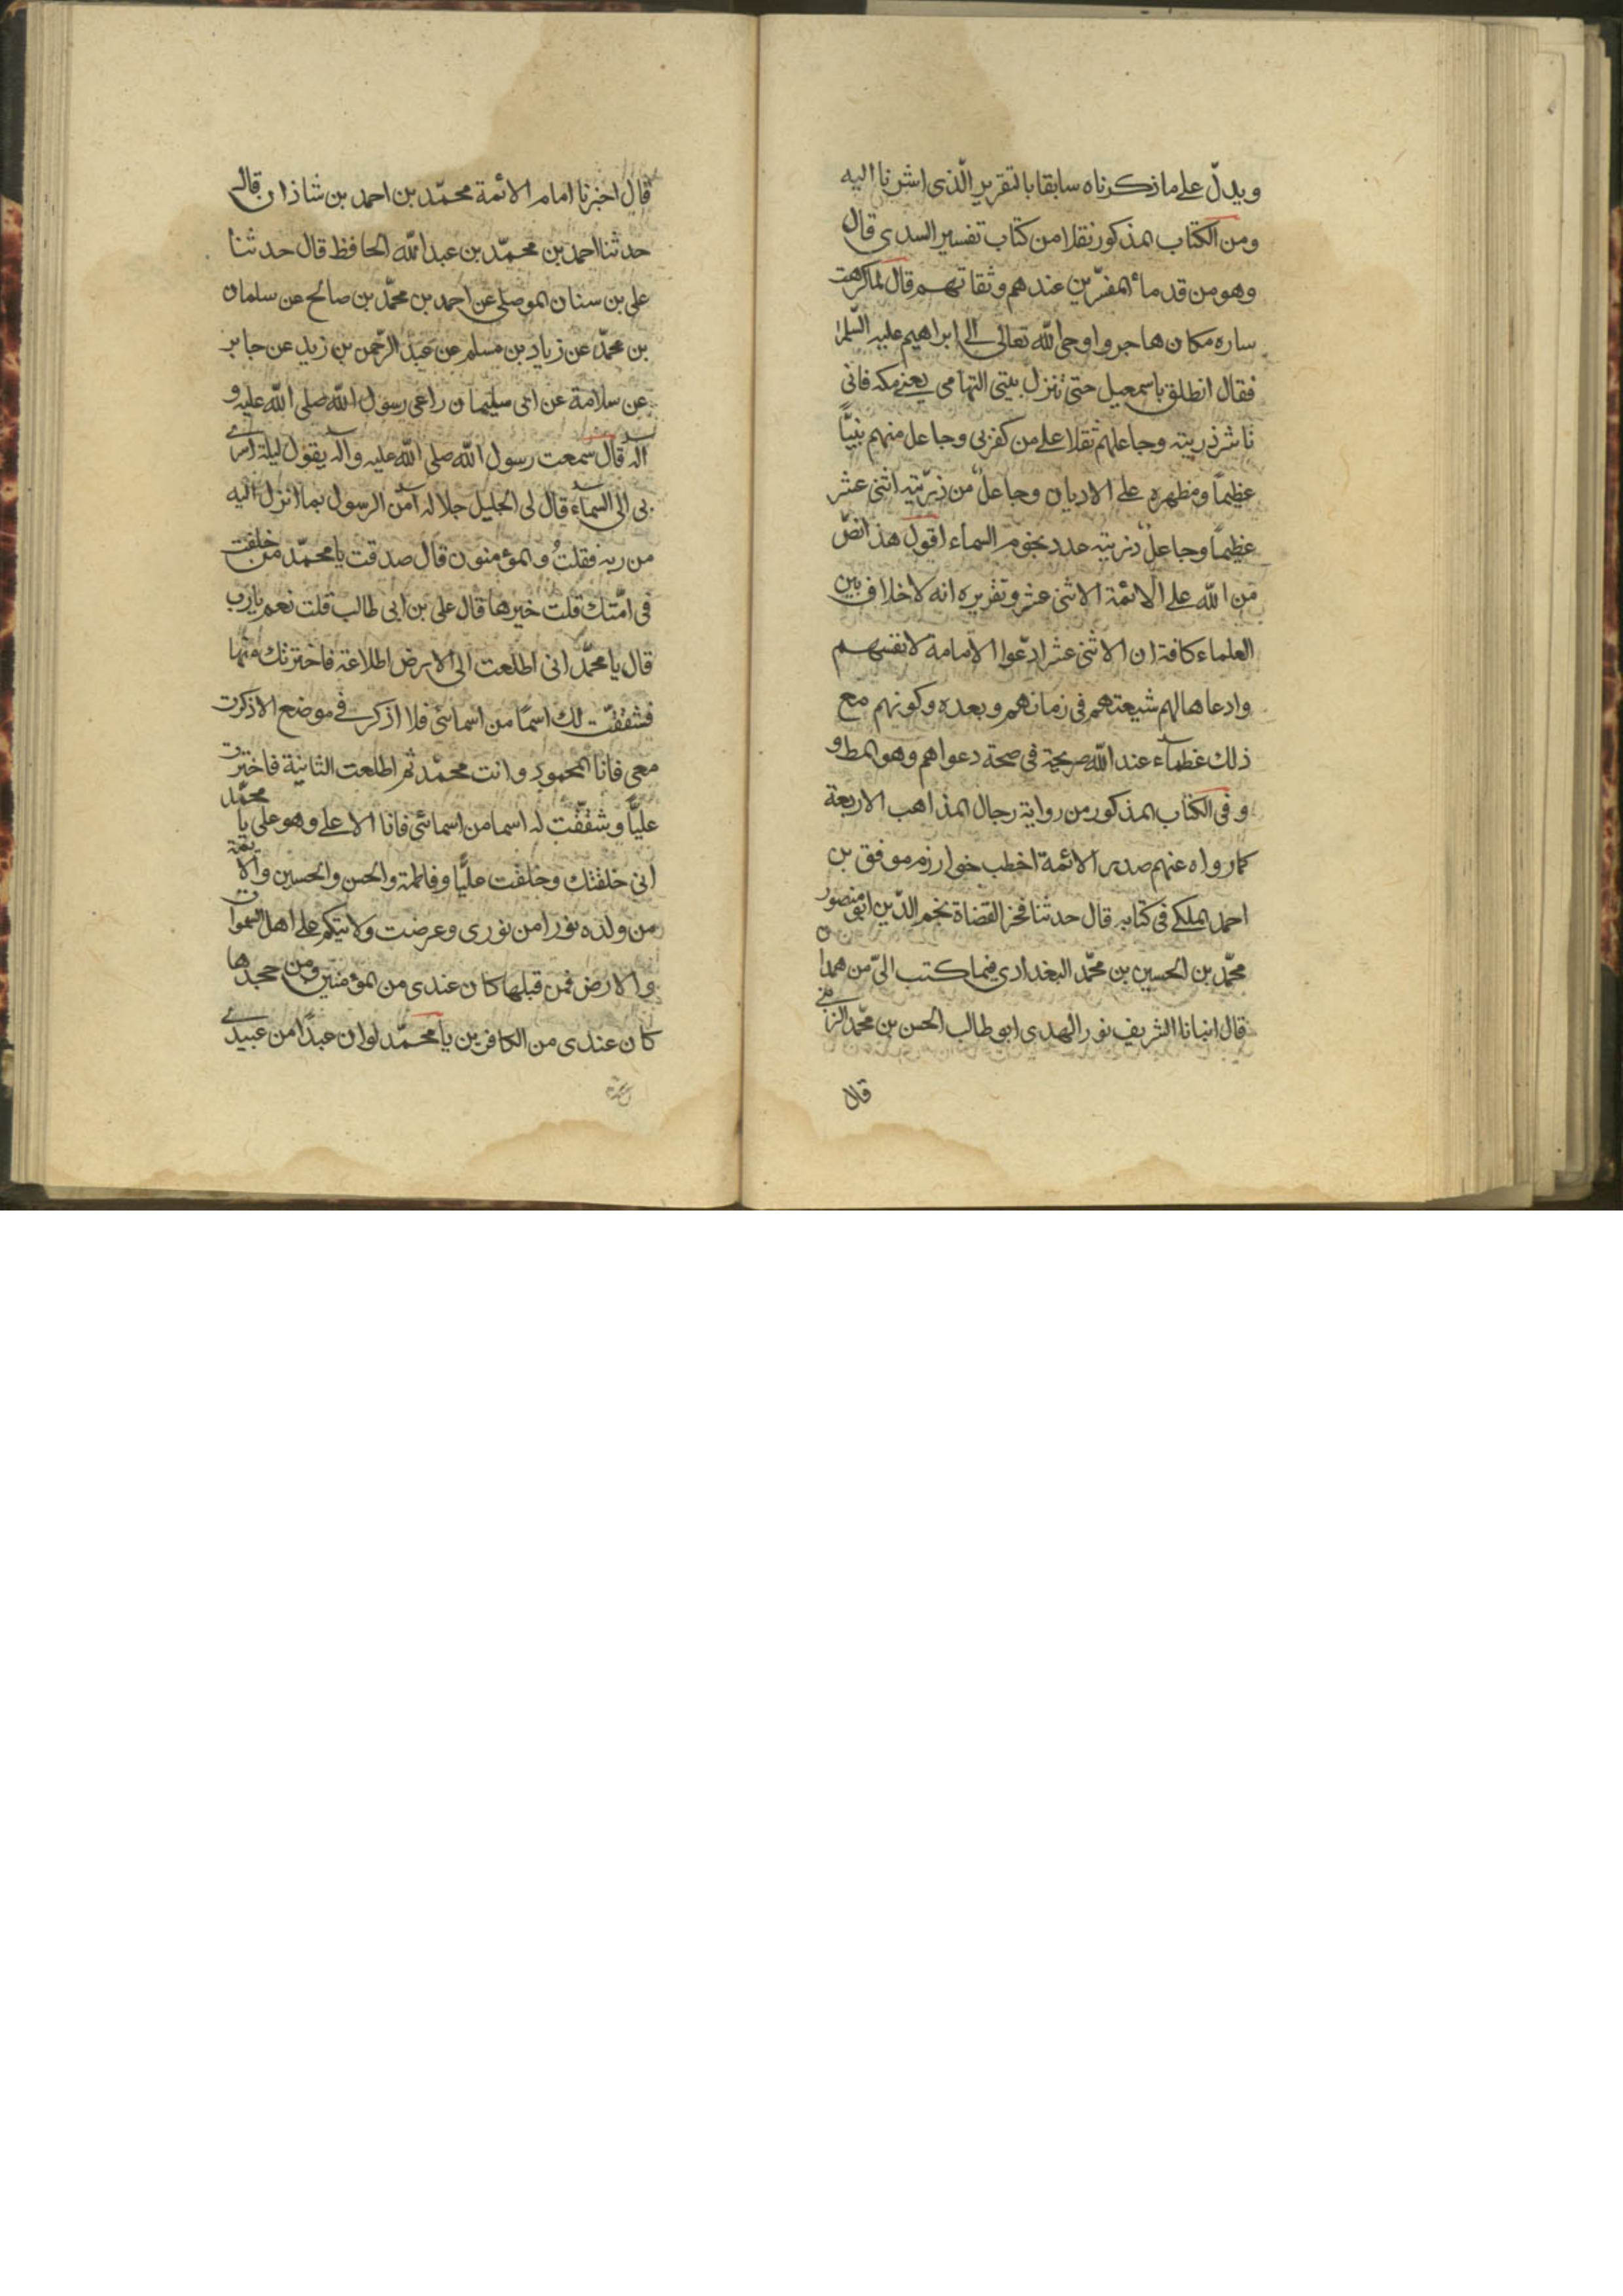 ويدلّ على ما ذكرناه سابقا بالتقرير الّذى اشرنا اليه
ومن الكتاب المذكور نقلا من كتاب تفسير السدى قال
وهو من قدماء المفسّرين عندهم وثقاتهم قال لما كرهت
ساره مكان هاجر واوحى الله تعالى الى ابراهيم عليه السّلم
فقال انطلق باسمعيل حتى تنزل بيتى التهامى يعنى مكه فانى
ناشر ذريته وجاعلهم ثقلا على من كفر بى وجاعل منهم نبيًّا
عظيمًا ومظهره على الاديان وجاعل من ذرّيته اثنى عشر
عظيمًا وجاعل ذريته عدد نجوم السماء اقول هذا نصّ
من الله على الائمة الاثنى عشر وتقريره انه لا خلاف بين
العلماء كافة ان الاثنى عشر ادّعوا الامامة لانفسهم
وادعاها لهم شيعتهم فى زمانهم وبعده وكونهم مع
ذلك عظماء عند الله صريحة فى صحة دعواهم وهو المط و
وفى الكتاب المذكور من رواية رجال المذاهب الاربعة
كما رواه عنهم صدر الائمة اخطب خوارزم موفق بن
احمد الملكى فى كتابه قال حدثنا فخر القضاة نجم الدّين ابو منصور
محمّد بن الحسين بن محمّد البغدادى فيما كتب الىّ من همدان
قال انبانا الشريف نور الهدى ابو طالب الحسن بن محمّد الزينى
قال
قال اخبرنا امام الائمة محمّد بن احمد بن شاذان قال
حدثنا احمد بن محمّد بن عبد الله الحافظ قال حدثنا
على بن سنان الموصلى عن احمد بن محمّد بن صالح عن سلمان
بن محمّد عن زياد بن مسلم عن عبد الرّحمن بن زيد عن جابر
عن سلامة عن ابى سليمان راعى رسول الله صلى الله عليه و
اله قال سمعت رسول الله صلى الله عليه واله يقول ليلة اسرى
بى الى السماء قال لى الجليل جلاله امن الرسول بما انزل اليه
من ربه فقلت والمؤمنون قال صدقت يا محمّد من خلفت
فى امّتك قلت خيرها قال على بن ابى طالب قلت نعم يا رب
قال يا محمّد انى اطلعت الى الارض اطلاعة فاخترتك منها
فشققت لك اسمًا من اسمائى فلا اذكر فى موضع الا ذكرت
معى فانا المحمود وانت محمّد ثم اطلعت الثانية فاخترت
عليًّا وشققت له اسما من اسمائى فانا الاعلى وهو على يا محمّد
انى خلقتك وخلقت عليًّا وفاطمة والحسن والحسين والائمة
من ولده نورا من نورى وعرضت ولايتكم على اهل السموات
والارض فمن قبلها كان عندى من المؤمنين ومن جحدها
كان عندى من الكافرين يا محمّد لو ان عبدًا من عبيدى